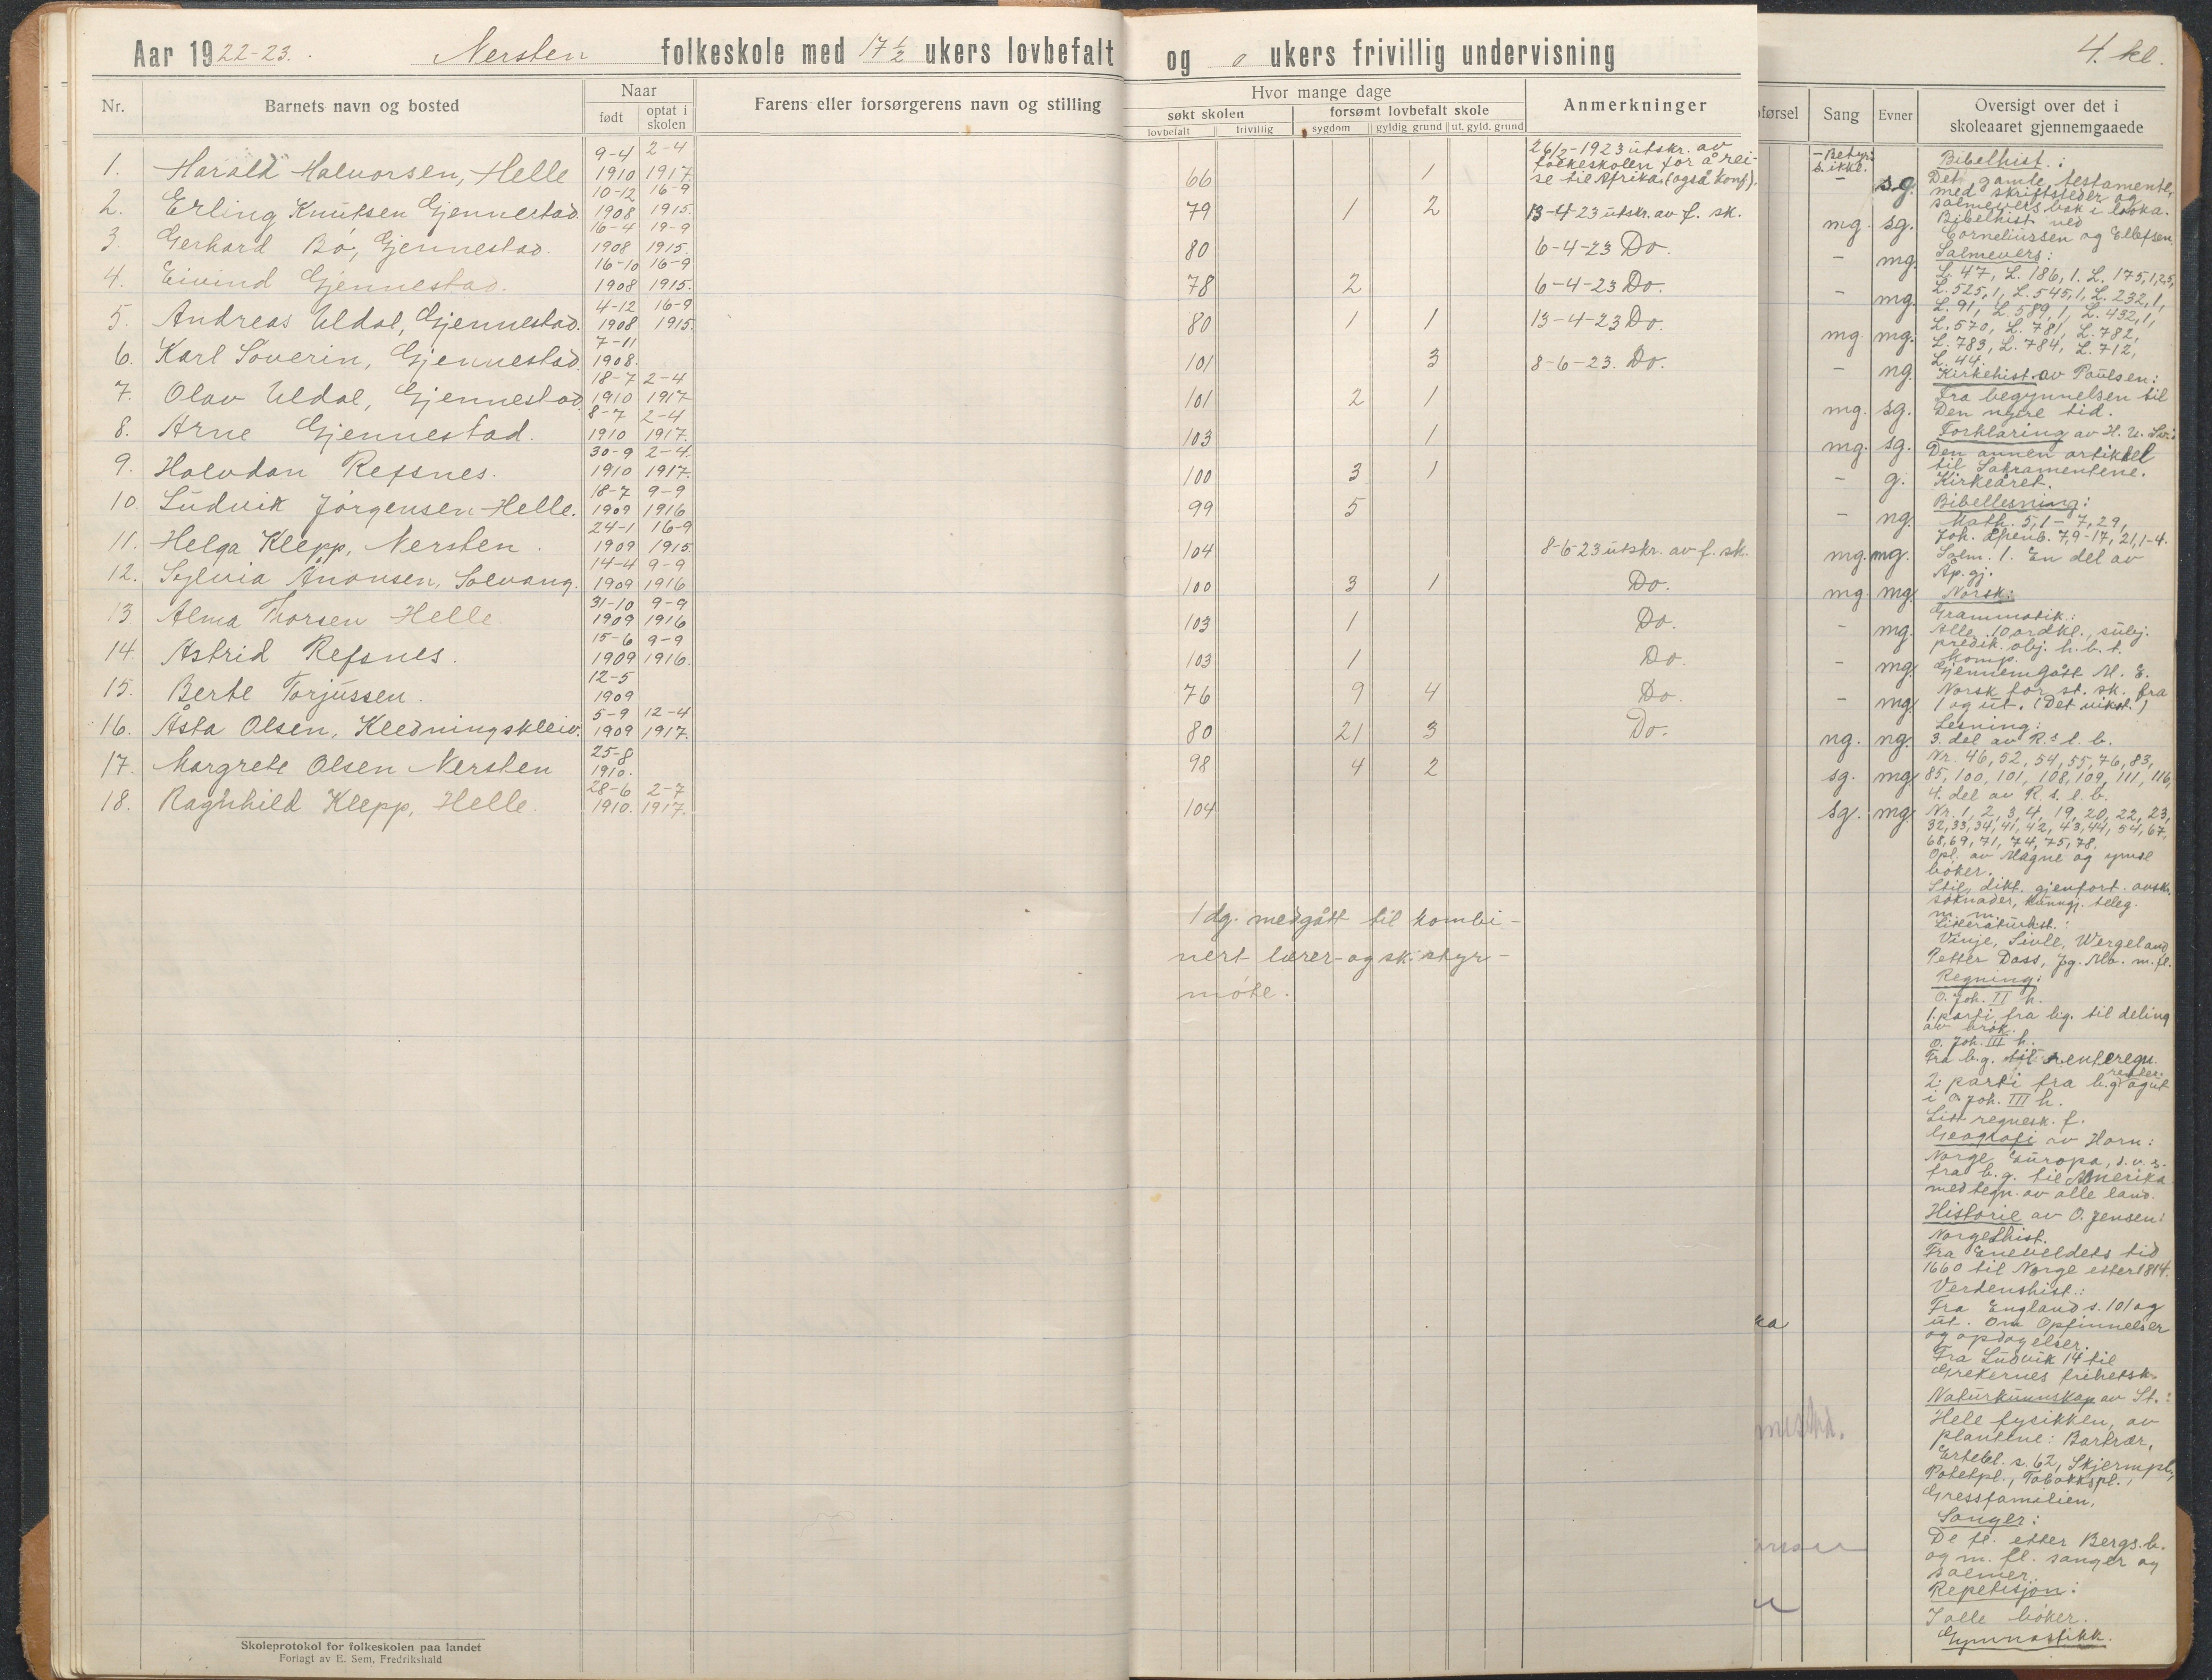 Aar 1922-23. Nersten folkeskole med 17 1/2 ukers lovbefalt og o ukers frivillig undervisning
4. kl.
Nr. Barnets navn og bosted Naar Farens eller forsørgerens navn og stilling Hvor mange dage Anmerkninger
født optat i skolen
søkt skolen forsømt lovbefalt skole
lovbefalt frivillig sygdom gyldig grund ut. gyld. grund
førsel Sang Evner Oversigt over det i
skoleaaret gjennemgaaede
1. Harald Halvorsen, Helle 9-4 1910 2-4 1917. 66 1 26/2-1923 utskr. av folkeskolen for å reise til Afrika (også konf).
2. Erling Knutsen Gjennestad. 10-12 1908 16-9 1915. 79 1 2 13-4-23 utskr. av f. sk.
3. Gerhard Bø, Gjennestad. 16-4 1908 19-9 1915. 80 6-4-23 Do.
4. Eivind Gjennestad. 16-10 1908 16-9 1915. 78 2 6-4-23 Do.
5. Andreas Uldal, Gjennestad. 4-12 1908 16-9 1915. 80 1 1 13-4-23 Do.
6. Karl Soverin, Gjennestad 7-11 1908. 101 3 8-6-23. Do.
7. Olav Uldal, Gjennestad 18-7 1910 2-4 1917 101 2 1
8. Arne Gjennestad. 8-7 1910 2-4 1917. 103 1
9. Halvdan Refsnes. 30-9 1910 2-4. 1917. 100 3 1
10. Ludvik Jørgensen Helle. 18-7 1909 9-9 1916 99 5
11. Helga Klepp, Nersten. 24-1 1909 16-9 1915 104 8-6-23 utskr. av f. sk.
12. Sylvia Ånonsen, Solvang. 14-4 1909 9-9 1916 100 3 1 Do.
13 Alma Thorsen Helle. 31-10 1909 9-9 1916 103 1 Do.
14. Astrid Refsnes. 15-6 1909 9-9 1916. 103 1 Do.
15. Berte Torjussen. 12-5 1909 76 9 4 Do.
16. Åsta Olsen, Kledningskleiv. 5-9 1909 12-4 1917. 80 21 3 Do.
17. Margrete Olsen Nersten 25-8 1910. 98 4 2
18. Raghhild Klepp, Helle. 28-6 1910. 2-7 1917. 104
1 dg. medgått til kombi-
nert lærer- og sk. styr-
møte.
- sg.
mg. sg.
- mg.
- mg.
mg mg.
- ng.
mg. sg.
mg. sg.
- g.
- ng.
mg. mg.
mg. mg.
- mg.
- mg.
- mg.
ng. ng.
sg. mg.
sg. mg.
Bibelhist.:
Det gamle testamente
med skriftsteder og
salmevers bak i boka.
Bibelhist. ved
Corneliussen og Ellefsen.
Salmevers:
L. 47, L. 186, 1. L. 175,1,2,5,
L. 525,1, L. 545,1, L. 232,1,
L. 91, L. 589, 1, L. 432,1,
L. 570, L. 781, L. 782,
L. 783, L. 784, L. 712,
L. 44.
Kirkehist. av Paulsen:
Fra begynnelsen til
Den nyere tid.
Forklaring av H. U. Sv.:
Den annen artikkel
til Sakramentene.
Kirkeåret.
Bibellesning:
Math. 5,1 - 7,29,
Joh. åpenb. 7,9-17, 21,1-4.
Salm. 1. En del av
Åp. gj.
Norsk:
Grammatik:
Alle 10 ordkl., subj.
predik. obj. h. b. t.
komp.
Gjennemgått M. E.
Norsk for st. sk. fra
1 og ut. (Det vikst.)
Lesning:
3. del av R.s l. b.
Nr. 46, 52, 54, 55, 76, 83,
85, 100, 101, 108, 109, 111, 116,
4. del av R. s. l. b.
Nr. 1, 2, 3, 4, 19, 20, 22, 23,
32, 33, 34, 41, 42, 43, 44, 54, 67,
68, 69, 71, 74, 75, 78.
Opl. av Magne og ymse
bøker.
Stil, dikt. gjenfort. avsk.
søknader, kunngj. teleg.
m. m.
Litteraturhist.:
Vinje, Sivle, Wergeland,
Petter Dass, Jørg. Mo. m. fl.
Regning:
O. Joh. II h.
1. parti fra lig. til deling
av brøk.
O. Joh. III h.
Fra b. g. til renteregn.
2. parti fra b. g. og ut
i O. Joh. III h.
Litt regnesk. f.
Geografi av Horn:
Norge, Europa, d. v. s.
fra b. g. til Amerika
med tegn. av alle land.
Historie av O. Jensen:
Norgeshist.
Fra Eneveldets tid
1660 til Norge etter 1814.
Verdenshist.:
Fra England s. 101 og
ut. Om Opfinnelser
og opdagelser.
Fra Ludvik 14 til
Grekernes frihetsk.
Naturkunnskap av St.:
Hele fysikken, av
plantene: Bartrær,
Ertebl. s. 62, Skjermpl.,
Potetpl., Tobakkspl.,
Gressfamilien,
Sanger:
De fl. etter Bergs. b.
og m. fl. sanger og
salmer.
Repetisjon:
I alle bøker.
Gymnastikk.
Skoleprotokol for folkeskolen paa landet
Forlagt av E. Sem, Fredrikshald